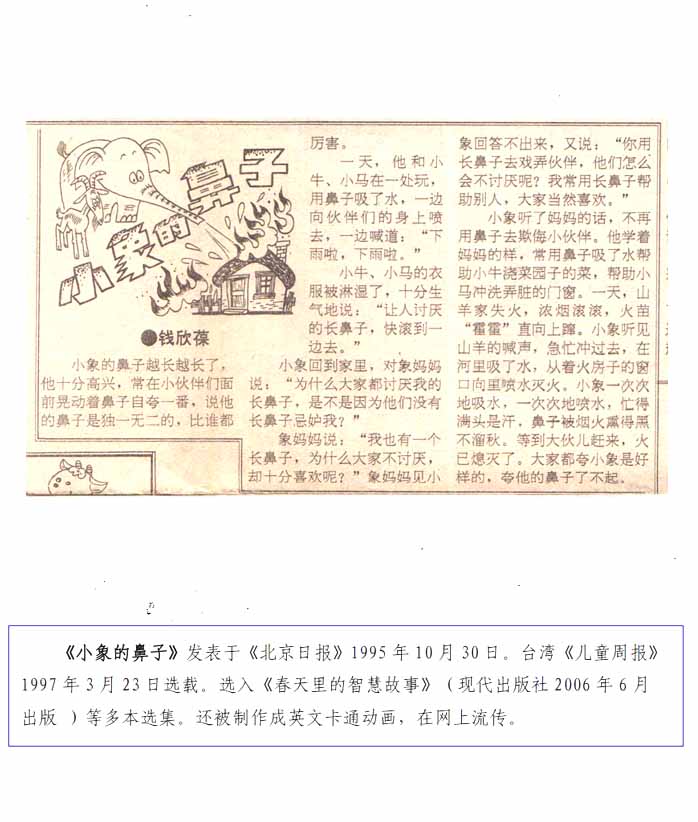 小象的鼻子
●钱欣葆
小象的鼻子越长越长了，
他十分高兴，常在小伙伴们面
前晃动着鼻子自夸一番，说他
的鼻子是独一无二的，比谁都
厉害。
一天，他和小
牛、小马在一处玩，
用鼻子吸了水，一边
向伙伴们的身上喷
去，一边喊道：“下
雨啦，下雨啦。”
小牛、小马的衣
服被淋湿了，十分生
气地说：“让人讨厌
的长鼻子，快滚到一
边去。”
小象回到家里，对象妈妈
说：“为什么大家都讨厌我的
长鼻子，是不是因为他们没有
长鼻子忌妒我？”
象妈妈说：“我也有一个
长鼻子，为什么大家不讨厌，
却十分喜欢呢？”象妈妈见小
象回答不出来，又说：“你用
长鼻子去戏弄伙伴，他们怎么
会不讨厌呢？我常用长鼻子帮
助别人，大家当然喜欢。”
小象听了妈妈的话，不再
用鼻子去欺侮小伙伴。他学着
妈妈的样，常用鼻子吸了水帮
助小牛浇菜园子的菜，帮助小
马冲洗弄脏的门窗。一天，山
羊家失火，浓烟滚滚，火苗
“霍霍”直向上蹿。小象听见
山羊的喊声，急忙冲过去，在
河里吸了水，从着火房子的窗
口向里喷水灭火。小象一次次
地吸水，一次次地喷水，忙得
满头是汗，鼻子被烟火熏得黑
不溜秋。等到大伙儿赶来，火
已熄灭了。大家都夸小象是好
样的，夸他的鼻子了不起。
《小象的鼻子》发表于《北京日报》1995 年 10 月 30 日。台湾《儿童周报》
1997 年 3 月 23 日选载。选入《春天里的智慧故事》（现代出版社 2006 年 6 月
出版 ）等多本选集。还被制作成英文卡通动画，在网上流传。